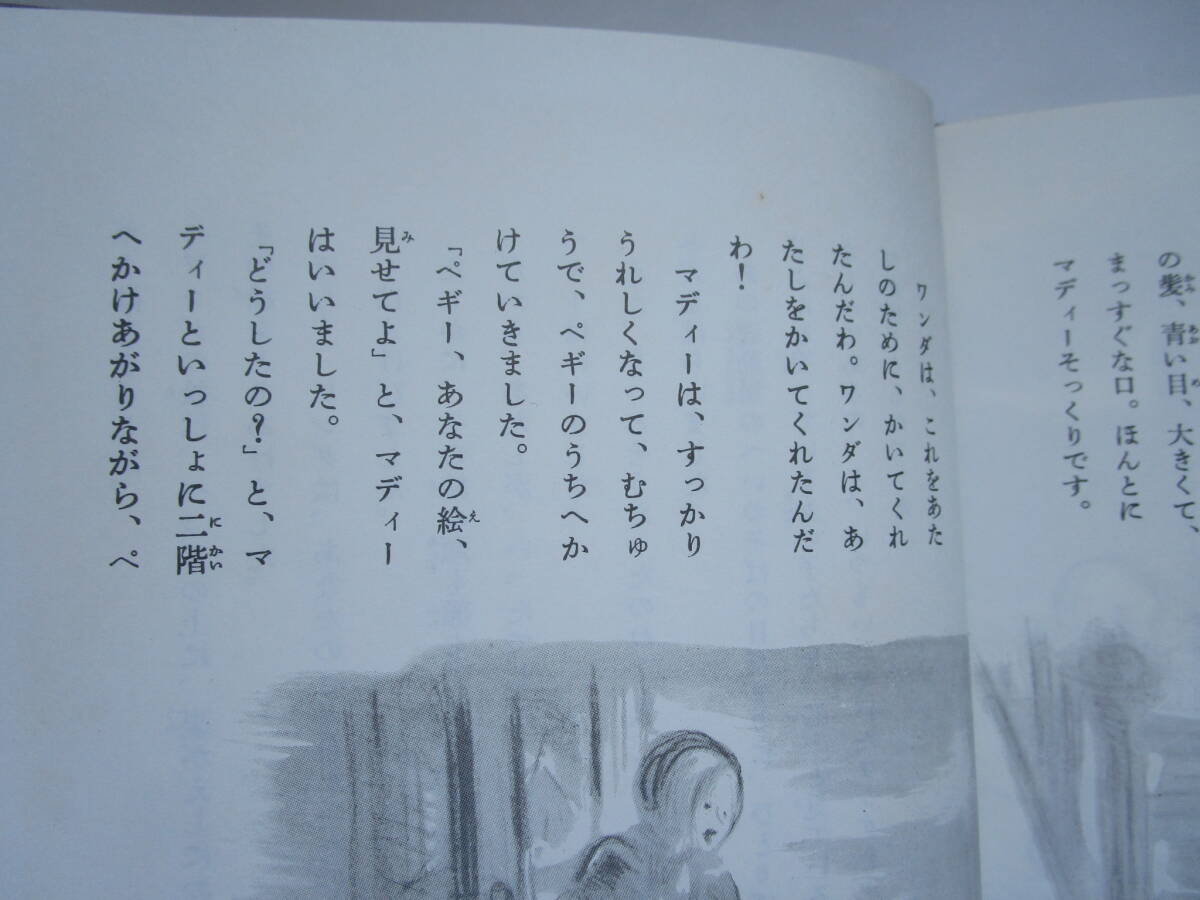 の髪、青い目、大きくて、
まっすぐな口。ほんとに
マディーそっくりです。
ワンダは、これをあた
しのために、かいてくれ
たんだわ。ワンダは、あ
たしをかいてくれたんだ
わ！
マディーは、すっかり
うれしくなって、むちゅ
うで、ペギーのうちへか
けていきました。
「ペギー、あなたの絵、
見せてよ」と、マディー
はいいました。
「どうしたの？」と、マ
ディーといっしょに二階
へかけあがりながら、ペ